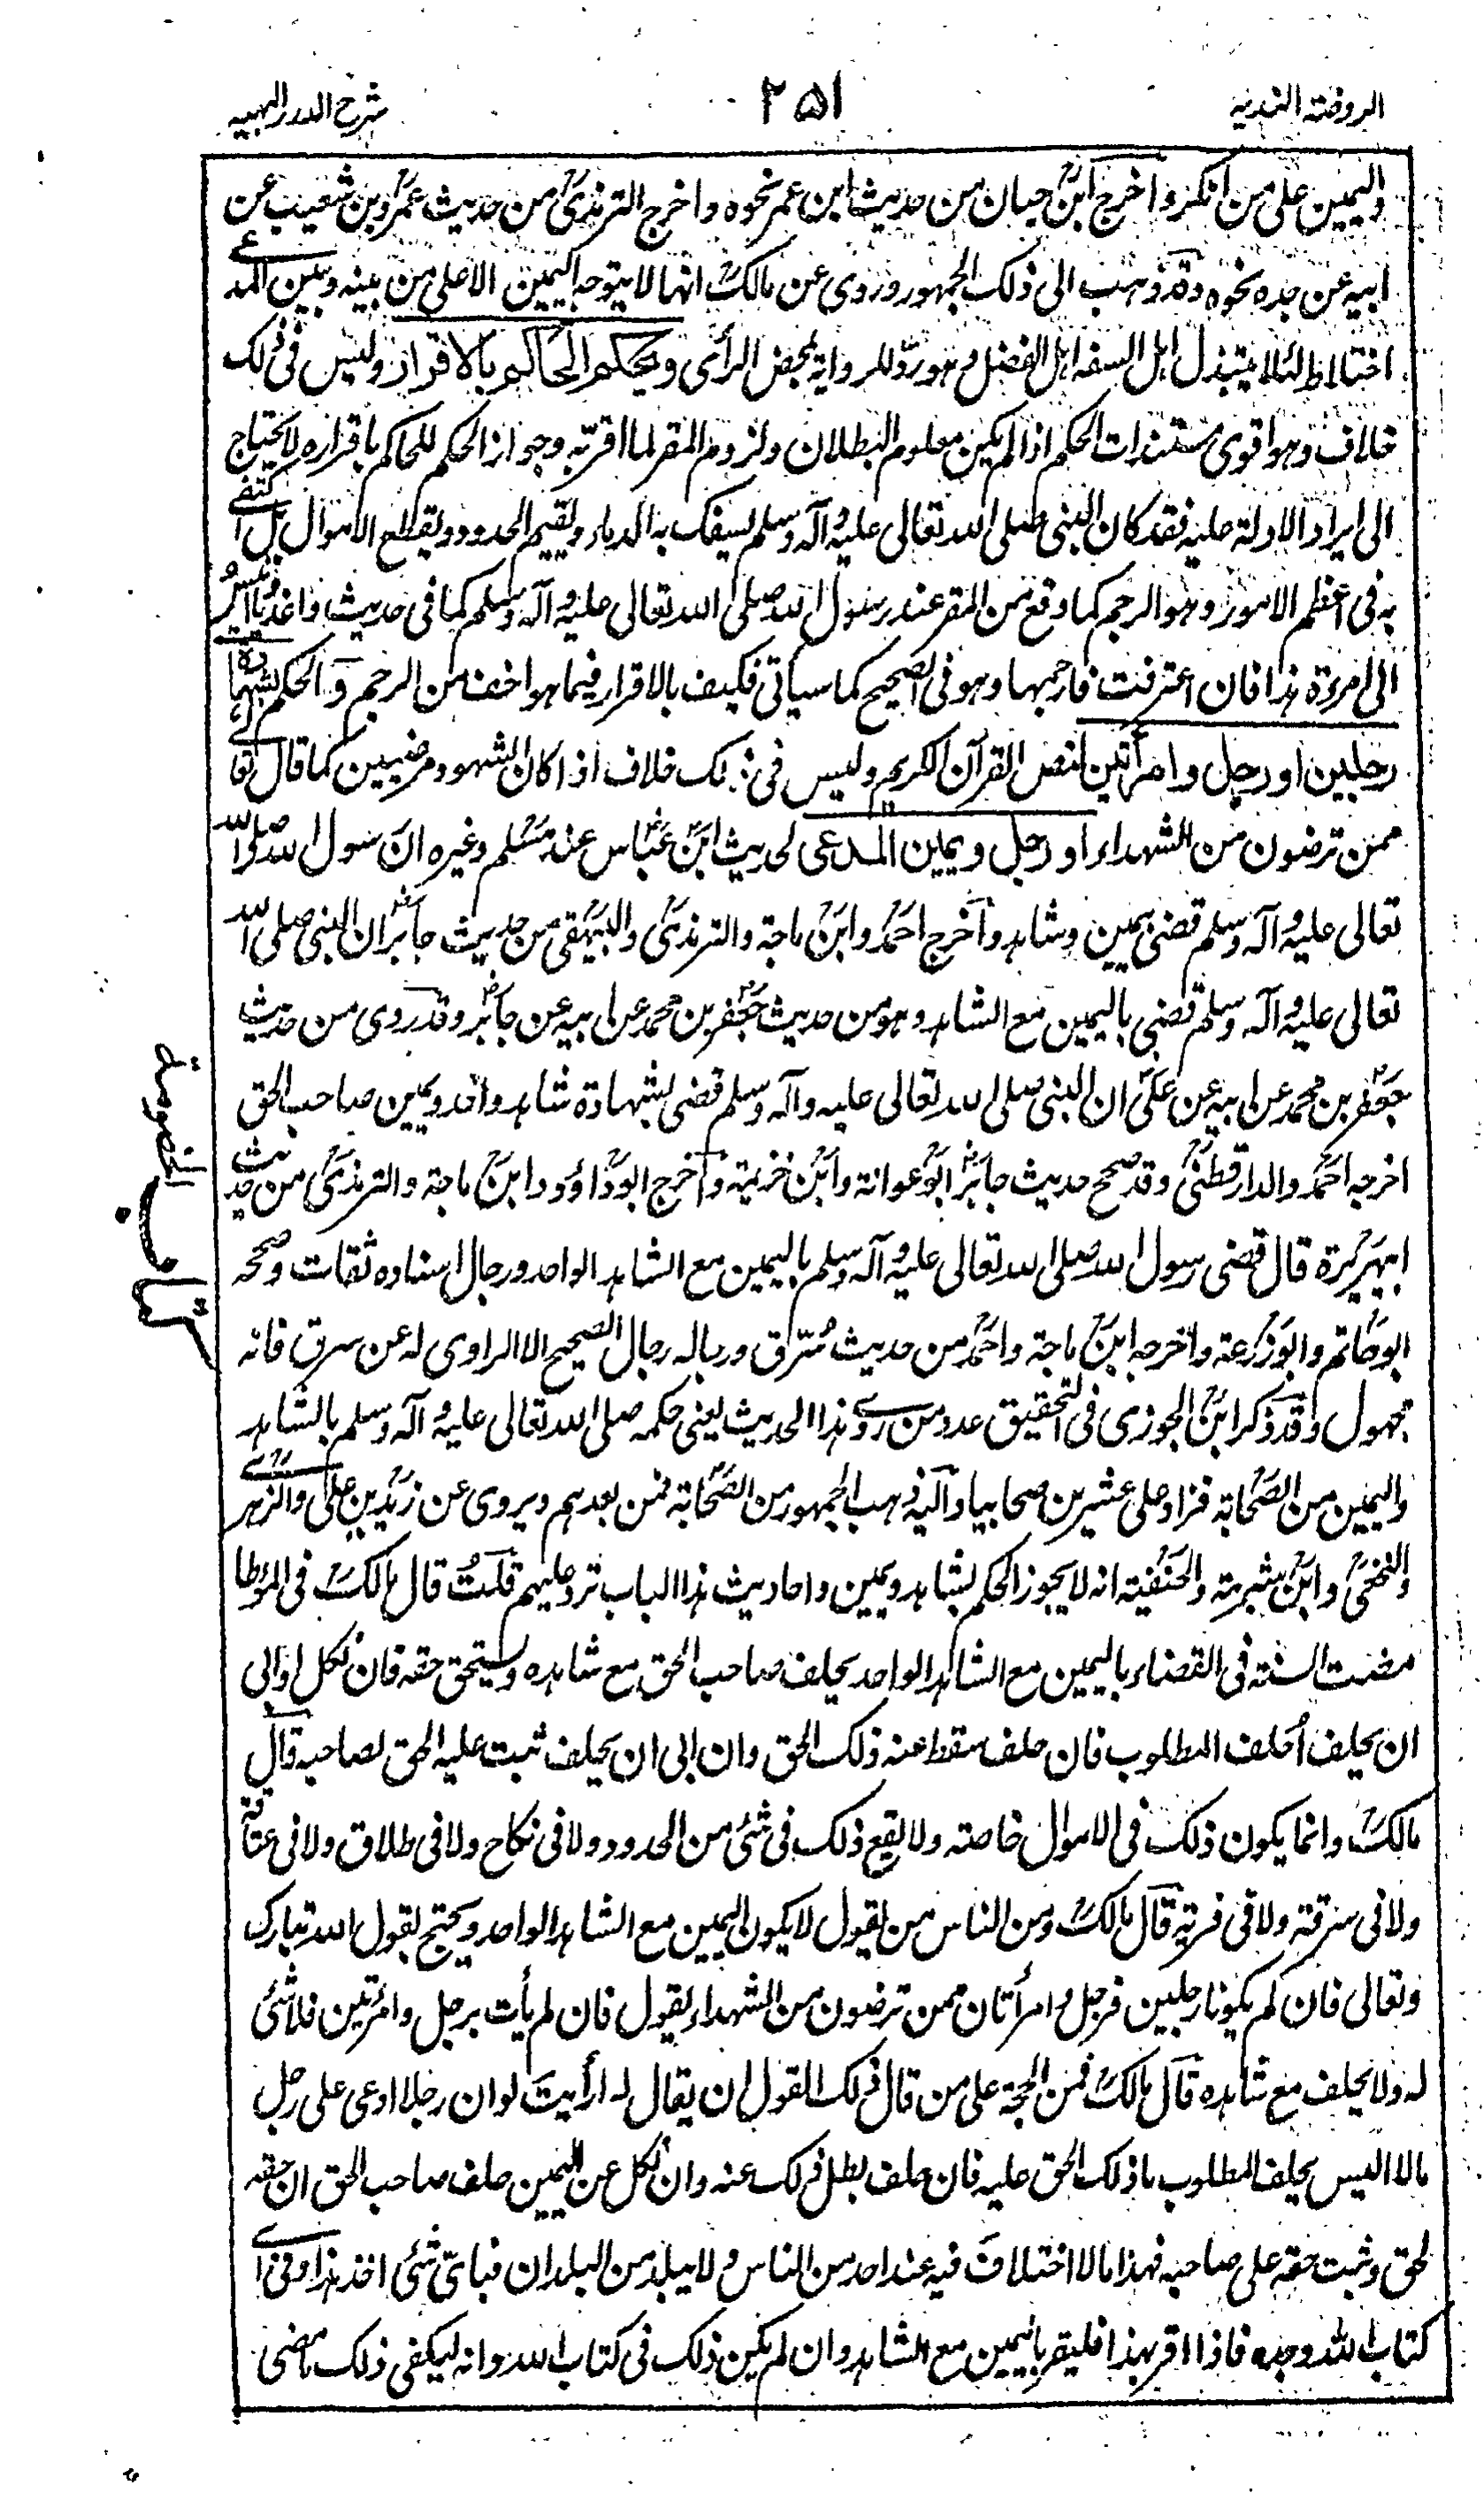 الروضة الندية
٢٥١
شرح الدرر البهية
واليمين على من انكر واخرج ابن حبان من حديث ابن عمر نحوه واخرج الترمذي من حديث عمرو بن شعيب عن
ابيه عن جده نحوه وقد ذهب الى ذلك الجمهور وروى عن مالك انها لا يتوجه اليمين الا على من بينه وبين المدعے
اختلاط لئلا يبتذل اهل السفه اهل الفضل وهو رد للرواية بمحض الرأى ويحكم الحاكم بالاقرار وليس فى ذلك
خلاف وهو اقوى مستندات الحكم اذا لم يكن معلوم البطلان ولزوم المقر لما اقر به وجواز الحكم للحاكم باقراره لا يحتاج
الى ايراد الادلة عليه فقد كان النبى صلى الله تعالى عليه وآله وسلم يسفك به الدماء ويقيم الحدود ويقطع الاموال بل اكتفے
به فى اعظم الامور وهو الرجم كما وقع من المقر عند رسول الله صلى الله تعالى عليه وآله وسلم كما فى حديث واغد يا انيس
الى امرءة هذا فان اعترفت فارجمها وهو فى الصحيح كما سياتى فكيف بالاقرار فيما هو اخف من الرجم والحكم بشهادة
رجلين او رجل وامرأتين لنص القرآن الكريم وليس فى ذلك خلاف اذا كان الشهود مرضيين كما قال تعالے
ممن ترضون من الشهداء او رجل ويمين المدعى لحديث ابن عباس عند مسلم وغيره ان رسول الله صلى الله
تعالى عليه وآله وسلم قضى بيمين وشاهد واخرج احمد وابن ماجة والترمذى والبيهقى من حديث جابر ان النبى صلى الله
تعالى عليه وآله وسلم قضى باليمين مع الشاهد وهو من حديث جعفر بن محمد عن ابيه عن جابر وقد روى من حديث
جعفر بن محمد عن ابيه عن على ان النبى صلى الله تعالى عليه وآله وسلم قضى بشهادة شاهد واحد ويمين صاحب الحق
اخرجه احمد والدارقطنى وقد صحح حديث جابر ابو عوانة وابن خزيمة واخرج ابو داؤد وابن ماجة والترمذى من حديث
ابيهريرة قال قضى رسول الله صلى الله تعالى عليه وآله وسلم باليمين مع الشاهد الواحد ورجال اسناده ثقات وصححه
ابو حاتم وابو زرعة واخرجه ابن ماجة واحمد من حديث سُرَّق ورجاله رجال الصحيح الا الراوى له عن سرق فانه
مجهول وقد ذكر ابن الجوزى فى التحقيق عدد من روے هذا الحديث يعنى حكمه صلى الله تعالى عليه وآله وسلم بالشاهد
واليمين من الصحابة فزاد على عشرين صحابيا واليه ذهب الجمهور من الصحابة فمن بعدهم ويروى عن زيد بن على والزهرے
والنخعى وابن شبرمة والحنفية انه لا يجوز الحكم بشاهد ويمين واحاديث هذا الباب ترد عليهم قلت قال مالك فى المؤطا
مضت السنة فى القضاء باليمين مع الشاهد الواحد يحلف صاحب الحق مع شاهده ويستحق حقه فان نكل او ابى
ان يحلف اُحلف المطلوب فان حلف سقط عنه ذلك الحق وان ابى ان يحلف ثبت عليه الحق لصاحبه قال
مالك وانما يكون ذلك فى الاموال خاصة ولا يقع ذلك فى شئ من الحدود ولا فى نكاح ولا فى طلاق ولا فى عتاقة
ولا فى سرقة ولا فى فرية قال مالك ومن الناس من يقول لا يكون اليمين مع الشاهد الواحد ويحتج بقول الله تبارك
وتعالى فان لم يكونا رجلين فرجل وامرأتان ممن ترضون من الشهداء يقول فان لم يأت برجل وامرئتين فلا شئ
له ولا يحلف مع شاهده قال مالك فمن الحجة على من قال ذلك القول ان يقال له أرأيت لو ان رجلا ادعى على رجل
مالا اليس يحلف المطلوب ما ذلك الحق عليه فان حلف بطل ذلك عنه وان نكل عن اليمين حلف صاحب الحق ان حقه
لحق وثبت حقه على صاحبه فهذا ما لا اختلاف فيه عند احد من الناس ولا ببلد من البلدان فبائ شئ اخذ هذا وفى اے
كتاب الله وجده فاذا اقر بهذا فليقر باليمين مع الشاهد وان لم يكن ذلك فى كتاب الله وانه ليكفى ذلك ما مضى
كتاب الخصومة